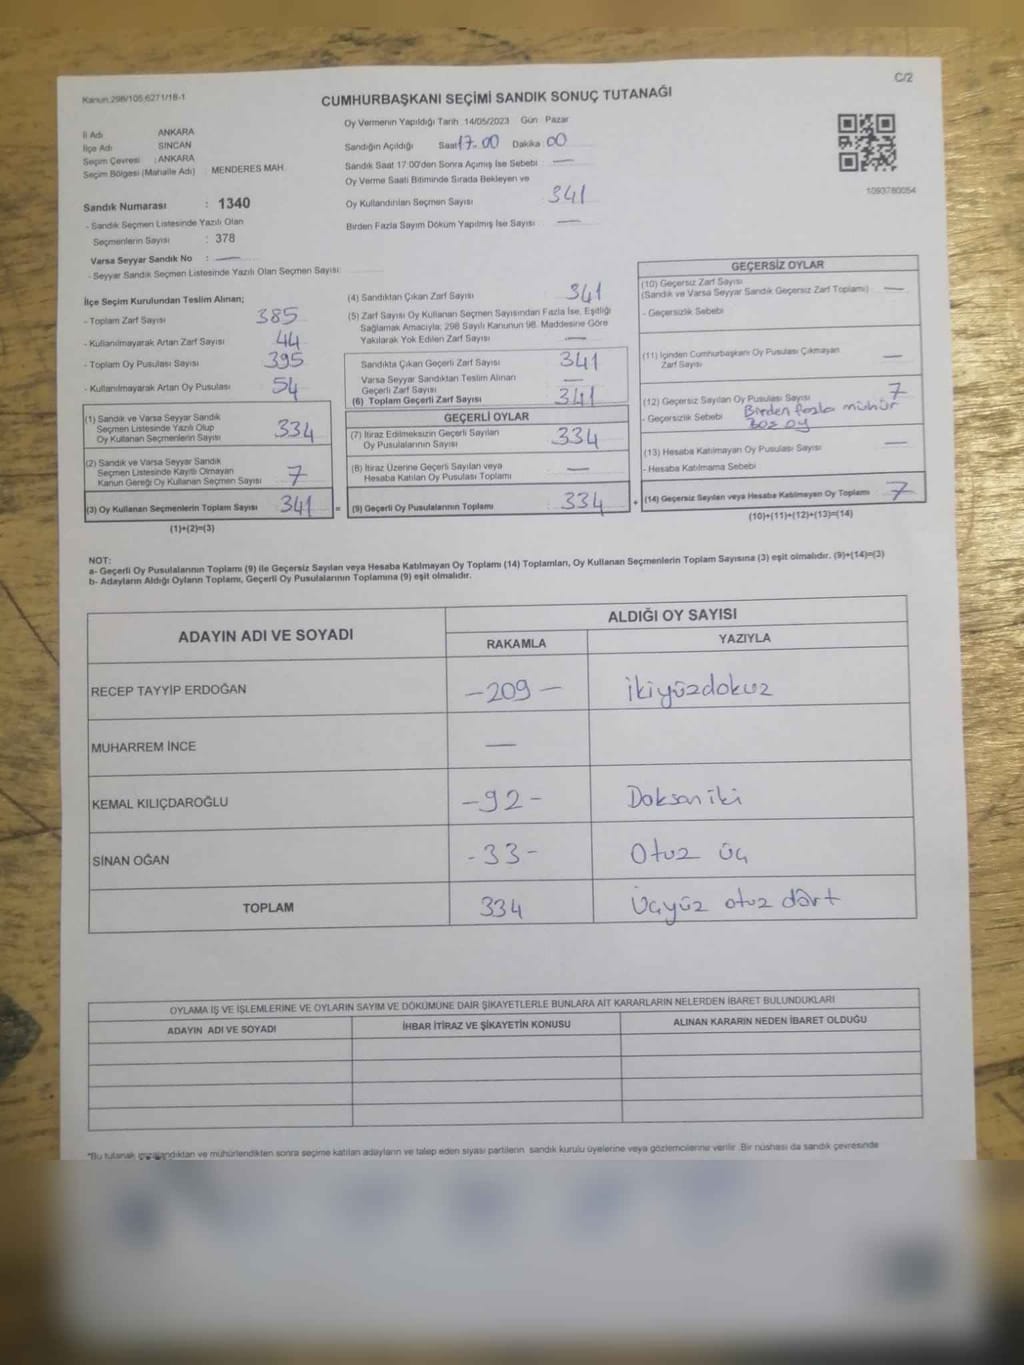 C/2
Kanun 298/105,6271/18-1
CUMHURBAŞKANI SEÇİMİ SANDIK SONUÇ TUTANAĞI
İl Adı ANKARA
İlçe Adı SİNCAN
Seçim Çevresi : ANKARA
Seçim Bölgesi (Mahalle Adı) : MENDERES MAH.
Sandık Numarası : 1340
- Sandık Seçmen Listesinde Yazılı Olan
Seçmenlerin Sayısı : 378
Varsa Seyyar Sandık No : —
- Seyyar Sandık Seçmen Listesinde Yazılı Olan Seçmen Sayısı:
Oy Vermenin Yapıldığı Tarih :14/05/2023 Gün : Pazar
Sandığın Açıldığı Saat 17.00 Dakika 00
Sandık Saat 17:00'den Sonra Açımış İse Sebebi —
Oy Verme Saati Bitiminde Sırada Bekleyen ve
Oy Kullandırılan Seçmen Sayısı 341
Birden Fazla Sayım Döküm Yapılmış İse Sayısı —
1093780054
İlçe Seçim Kurulundan Teslim Alınan;
- Toplam Zarf Sayısı 385
- Kullanılmayarak Artan Zarf Sayısı 44
- Toplam Oy Pusulası Sayısı 395
- Kullanılmayarak Artan Oy Pusulası 54
(1) Sandık ve Varsa Seyyar Sandık
Seçmen Listesinde Yazılı Olup
Oy Kullanan Seçmenlerin Sayısı 334
(2) Sandık ve Varsa Seyyar Sandık
Seçmen Listesinde Kayıtlı Olmayan
Kanun Gereği Oy Kullanan Seçmen Sayısı 7
(3) Oy Kullanan Seçmenlerin Toplam Sayısı 341 =
(1)+(2)=(3)
(4) Sandıktan Çıkan Zarf Sayısı 341
(5) Zarf Sayısı Oy Kullanan Seçmen Sayısından Fazla İse, Eşitliği
Sağlamak Amacıyla, 298 Sayılı Kanunun 98. Maddesine Göre
Yakılarak Yok Edilen Zarf Sayısı —
Sandıkta Çıkan Geçerli Zarf Sayısı 341
Varsa Seyyar Sandıktan Teslim Alınan
Geçerli Zarf Sayısı —
(6) Toplam Geçerli Zarf Sayısı 341
GEÇERLİ OYLAR
(7) İtiraz Edilmeksizin Geçerli Sayılan
Oy Pusulalarının Sayısı 334
(8) İtiraz Üzerine Geçerli Sayılan veya
Hesaba Katılan Oy Pusulası Toplamı —
(9) Geçerli Oy Pusulalarının Toplamı 334 +
GEÇERSİZ OYLAR
(10) Geçersiz Zarf Sayısı
(Sandık ve Varsa Seyyar Sandık Geçersiz Zarf Toplamı) —
- Geçersizlik Sebebi
(11) İçinden Cumhurbaşkanı Oy Pusulası Çıkmayan
Zarf Sayısı —
(12) Geçersiz Sayılan Oy Pusulası Sayısı 7
- Geçersizlik Sebebi Birden fazla mühür
Boş oy
(13) Hesaba Katılmayan Oy Pusulası Sayısı —
- Hesaba Katılmama Sebebi
(14) Geçersiz Sayılan veya Hesaba Katılmayan Oy Toplamı 7
(10)+(11)+(12)+(13)=(14)
NOT:
a- Geçerli Oy Pusulalarının Toplamı (9) ile Geçersiz Sayılan veya Hesaba Katılmayan Oy Toplamı (14) Toplamları, Oy Kullanan Seçmenlerin Toplam Sayısına (3) eşit olmalıdır. (9)+(14)=(3)
b- Adayların Aldığı Oyların Toplamı, Geçerli Oy Pusulalarının Toplamına (9) eşit olmalıdır.
ADAYIN ADI VE SOYADI
ALDIĞI OY SAYISI
RAKAMLA YAZIYLA
RECEP TAYYİP ERDOĞAN -209- ikiyüzdokuz
MUHARREM İNCE —
KEMAL KILIÇDAROĞLU -92- Doksan iki
SİNAN OĞAN -33- Otuz üç
TOPLAM 334 Üçyüz otuz dört
OYLAMA İŞ VE İŞLEMLERİNE VE OYLARIN SAYIM VE DÖKÜMÜNE DAİR ŞİKAYETLERLE BUNLARA AİT KARARLARIN NELERDEN İBARET BULUNDUKLARI
ADAYIN ADI VE SOYADI İHBAR İTİRAZ VE ŞİKAYETİN KONUSU ALINAN KARARIN NEDEN İBARET OLDUĞU
*Bu tutanak imzalandıktan ve mühürlendikten sonra seçime katılan adayların ve talep eden siyasi partilerin sandık kurulu üyelerine veya gözlemcilerine verilir. Bir nüshası da sandık çevresinde